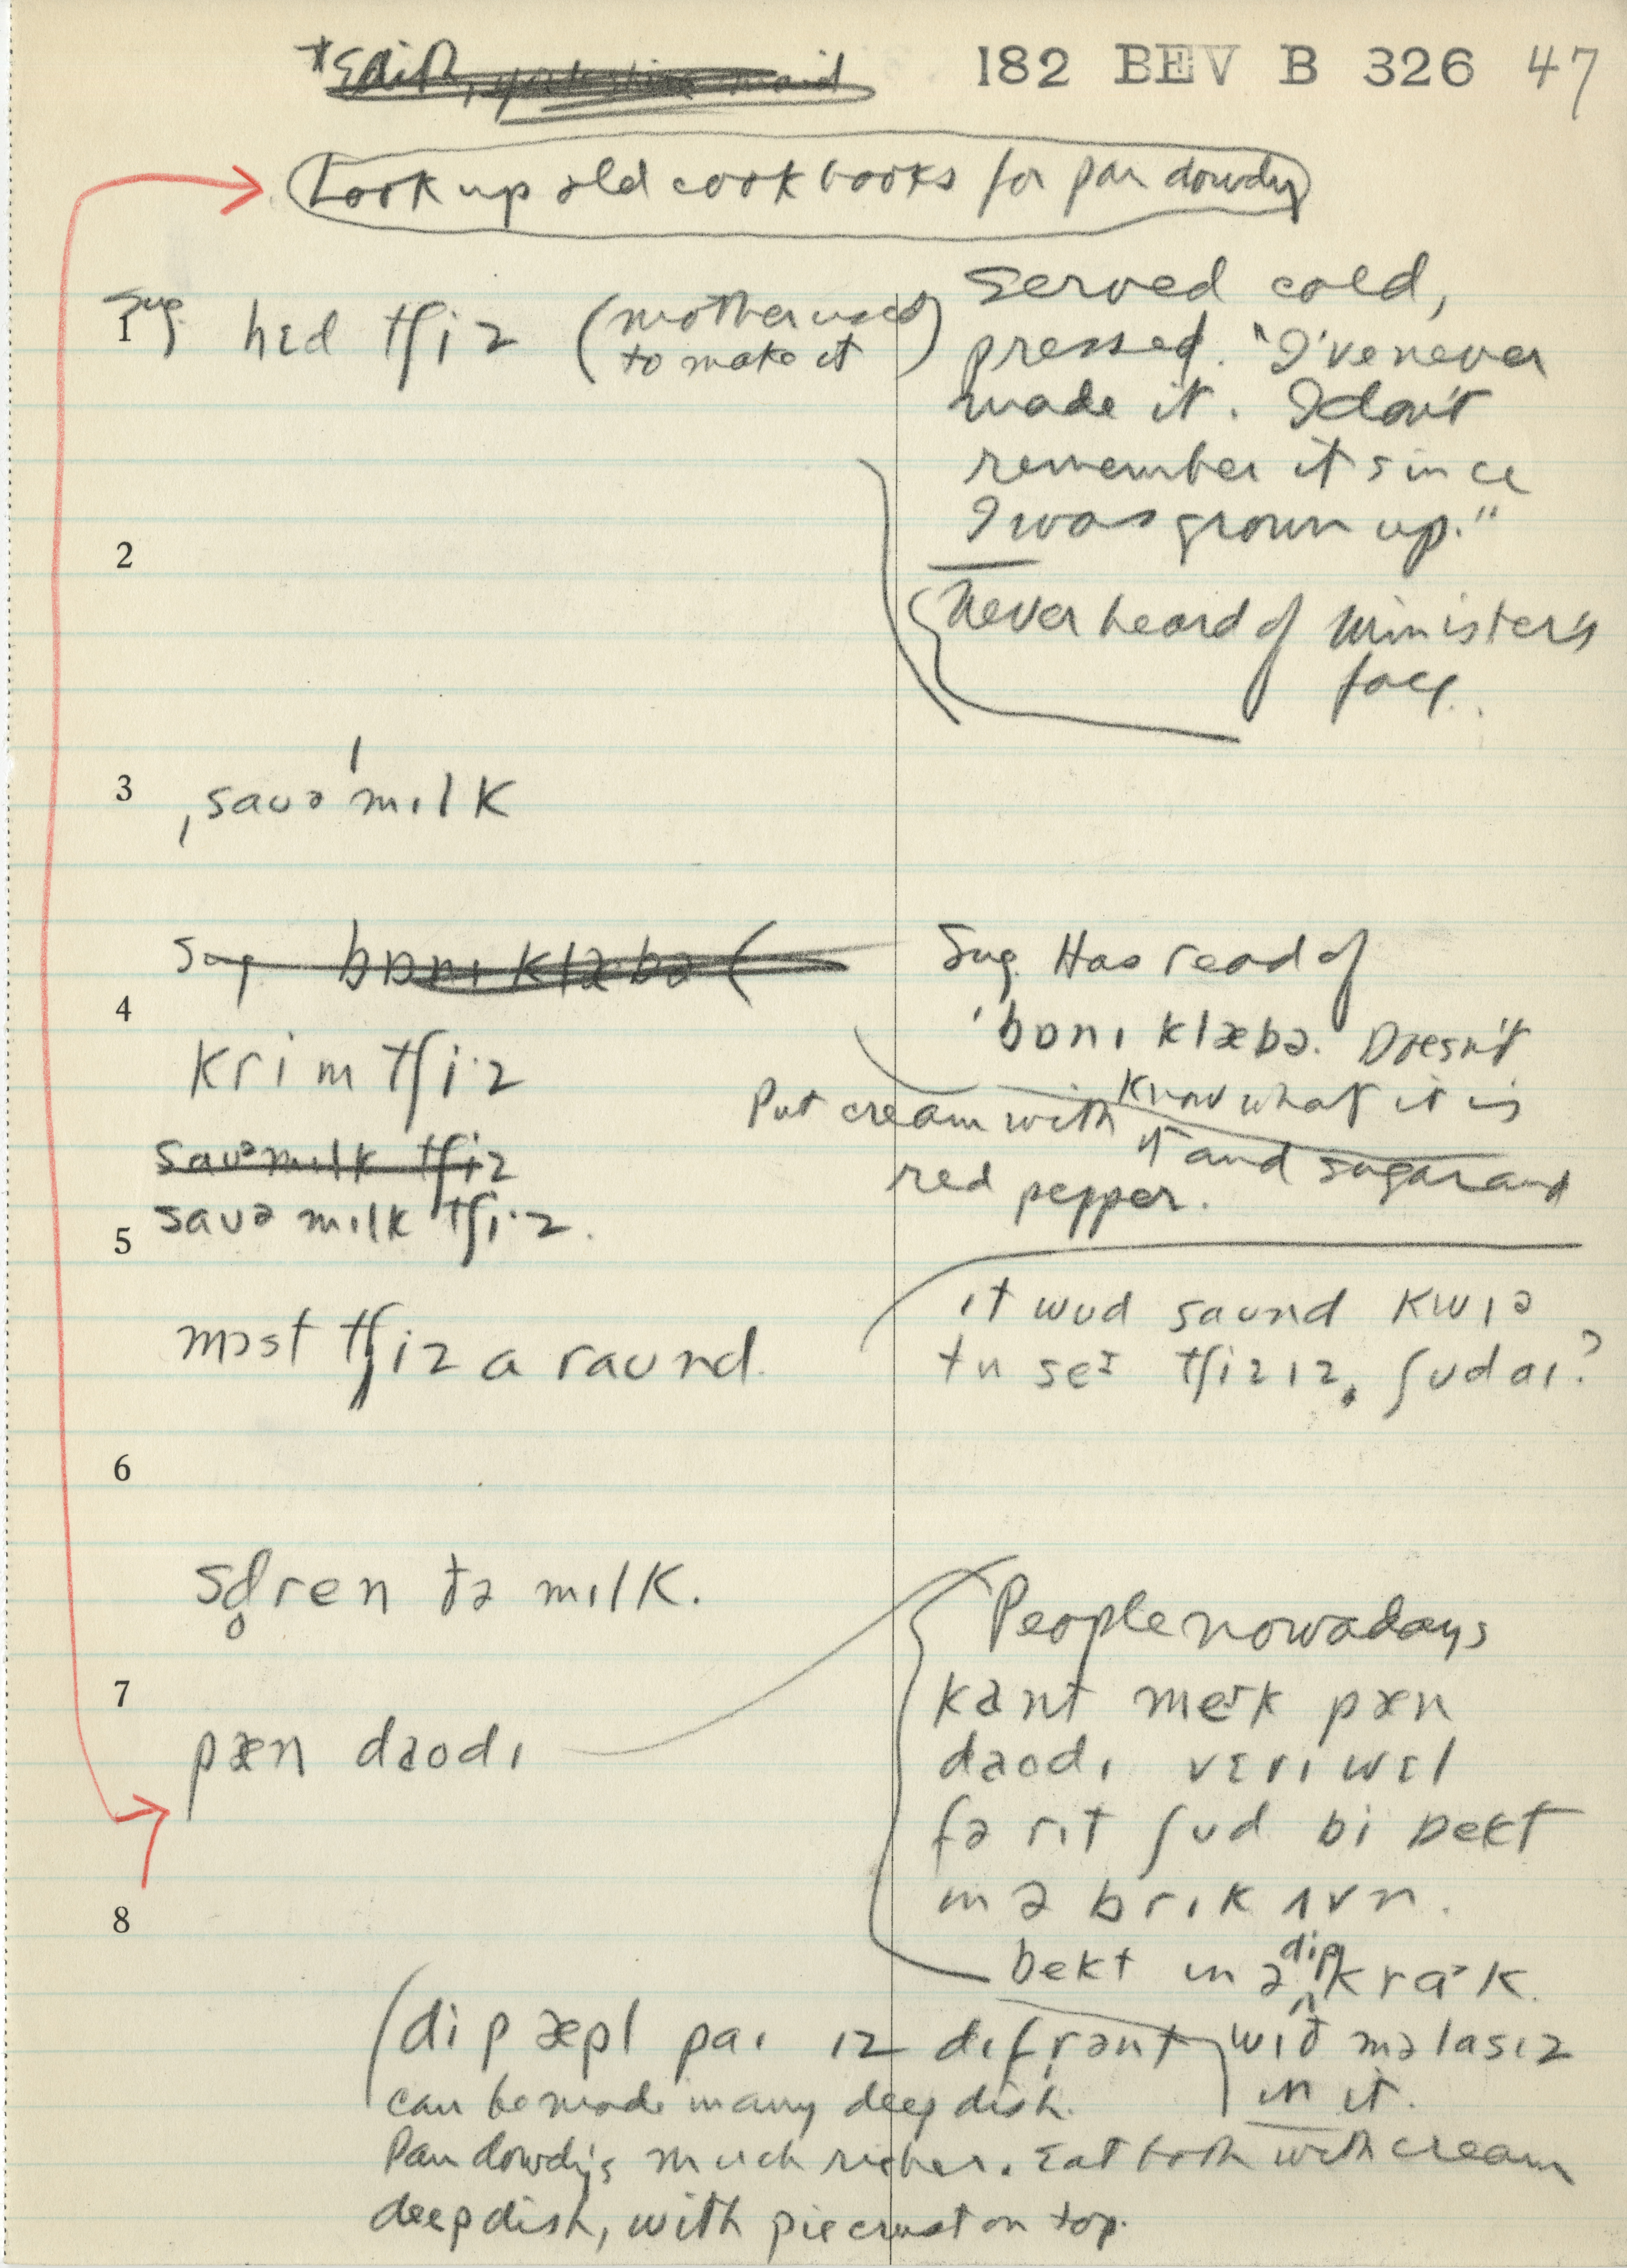 182 BEV B 326 47
Look up old cookbooks for pan dowdy
Sug.
1 hɛd tʃiz (mother used
to make it)
Served cold,
pressed. "I've never
made it. I don't
remember it since
I was grown up."
2
Never heard of Minister's
face.
3 ˌsauə ˈmɪlk
Sug bɒnɪ klæbə (
4
krim tʃi·z
Sug. Has read of
'bɒnɪ klæbə. Doesn't
know what it is
Put cream with it and sugar and
red pepper.
sauəmɪlk tʃiz
sauə mɪlk tʃi·z.
5
mɔst tʃiz a raund.
ɪt wud saund kwɪə
tu seɪ tʃizɪz, ʃudaɪ?
6
ðə mɪlk.
7
pæn daodɪ
People nowadays
kant meɪk pæn
daodɪ vɛrɪ wɛl
fə rɪt ʃud bi bekt
ɪn ə brɪk ʌvn.
8
bekt ɪn ə dip kra·k.
wɪð məlasɪz
in it.
(dip æpl paɪ ɪz dɪfrənt
can be made in any deep dish.
Pan dowdy's much richer. Eat both with cream
deep dish, with piecrust on top.